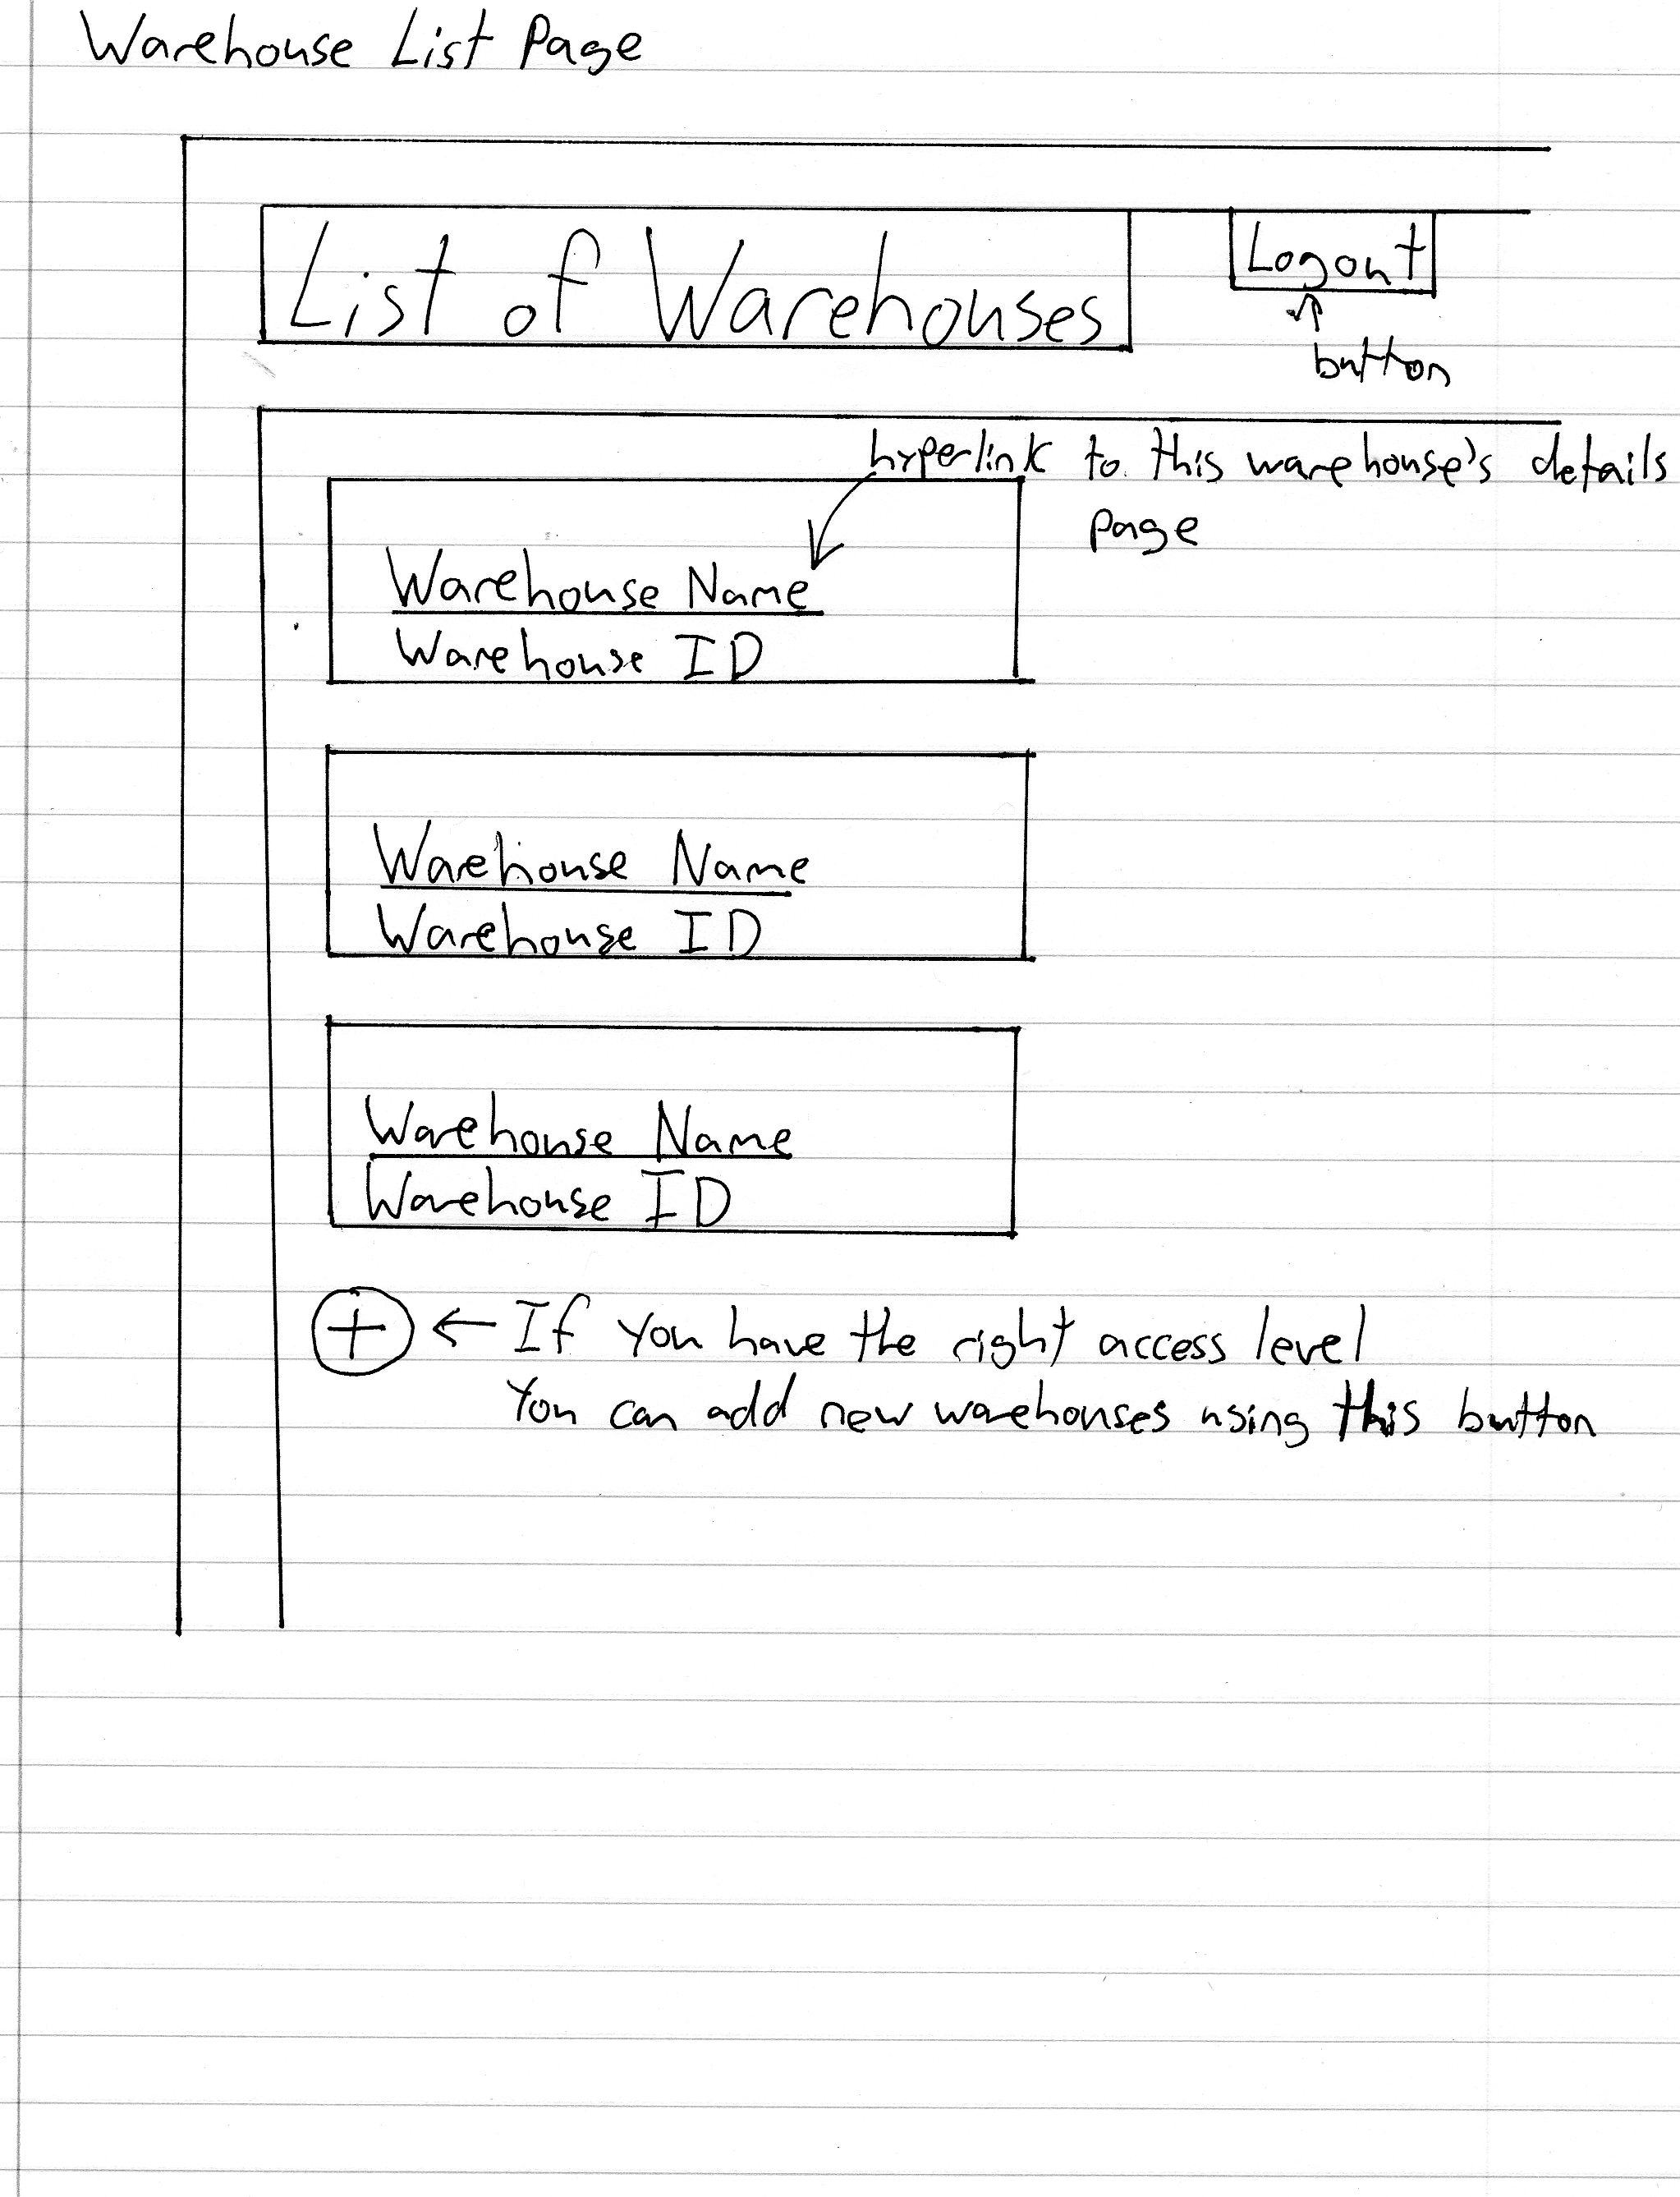 Warehouse List Page
List of Warehouses
Logout
button
hyperlink to this warehouse's details
page
Warehouse Name
Warehouse ID
Warehouse Name
Warehouse ID
Warehouse Name
Warehouse ID
+ ← If you have the right access level
You can add new warehouses using this button